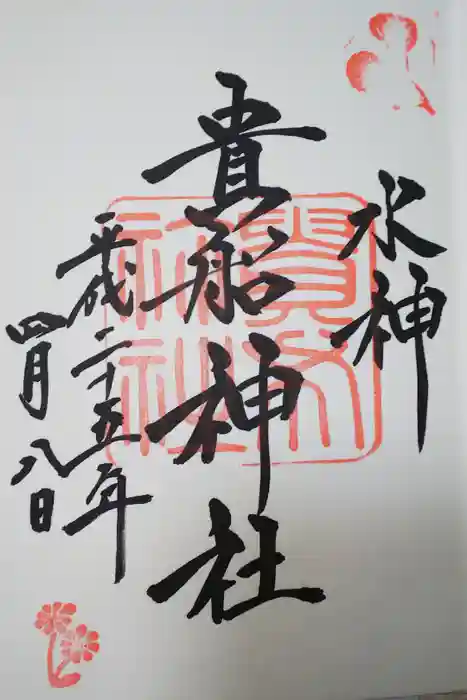 水神
貴船神社
平成二十五年
四月八日